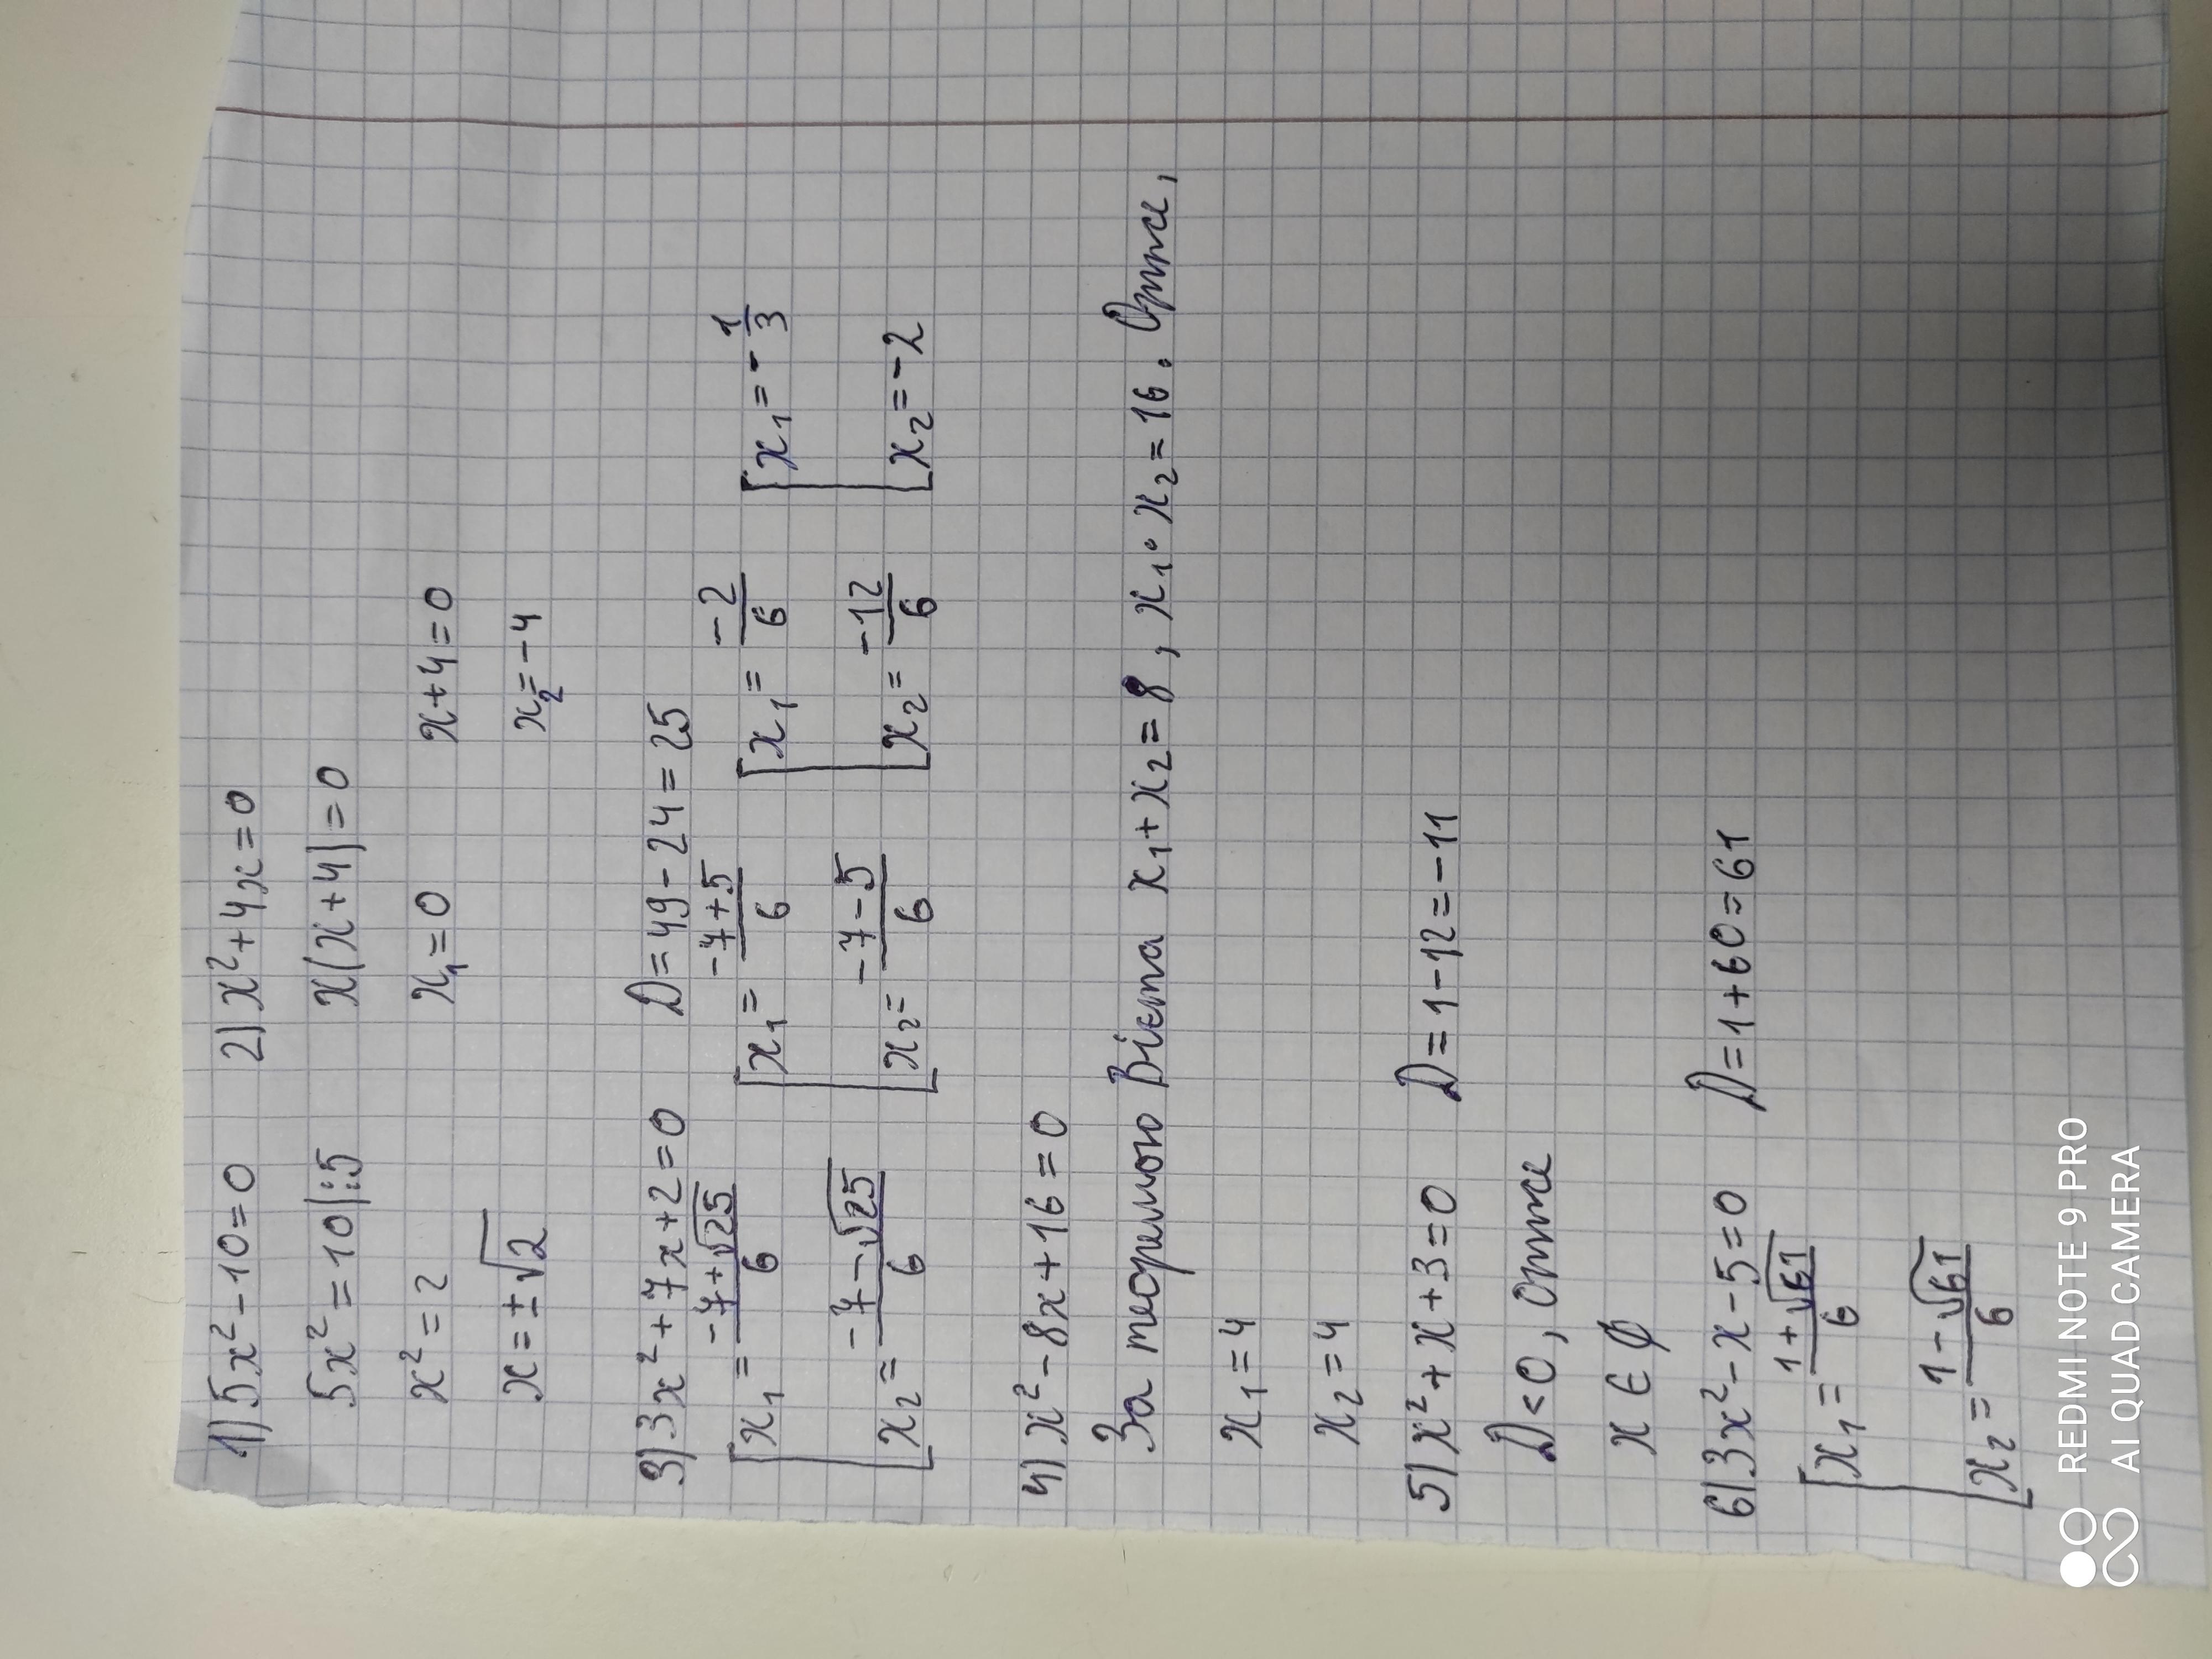 1) 5x²-10=0 2) x²+4x=0
5x²=10|:5 x(x+4)=0
x²=2 x₁=0 x+4=0
x=±√2 x₂=-4
3) 3x²+7x+2=0 D=49-24=25
[x₁=(-7+√25)/6 [x₁=(-7+5)/6 [x₁=-2/6 [x₁=-1/3
[x₂=(-7-√25)/6 [x₂=(-7-5)/6 [x₂=-12/6 [x₂=-2
4) x²-8x+16=0
За теоремою Вієта x₁+x₂=8, x₁·x₂=16. Отже,
x₁=4
x₂=4
5) x²+x+3=0 D=1-12=-11
D<0, отже
x∈∅
6) 3x²-x-5=0 D=1+60=61
[x₁=(1+√61)/6
[x₂=(1-√61)/6
REDMI NOTE 9 PRO
AI QUAD CAMERA